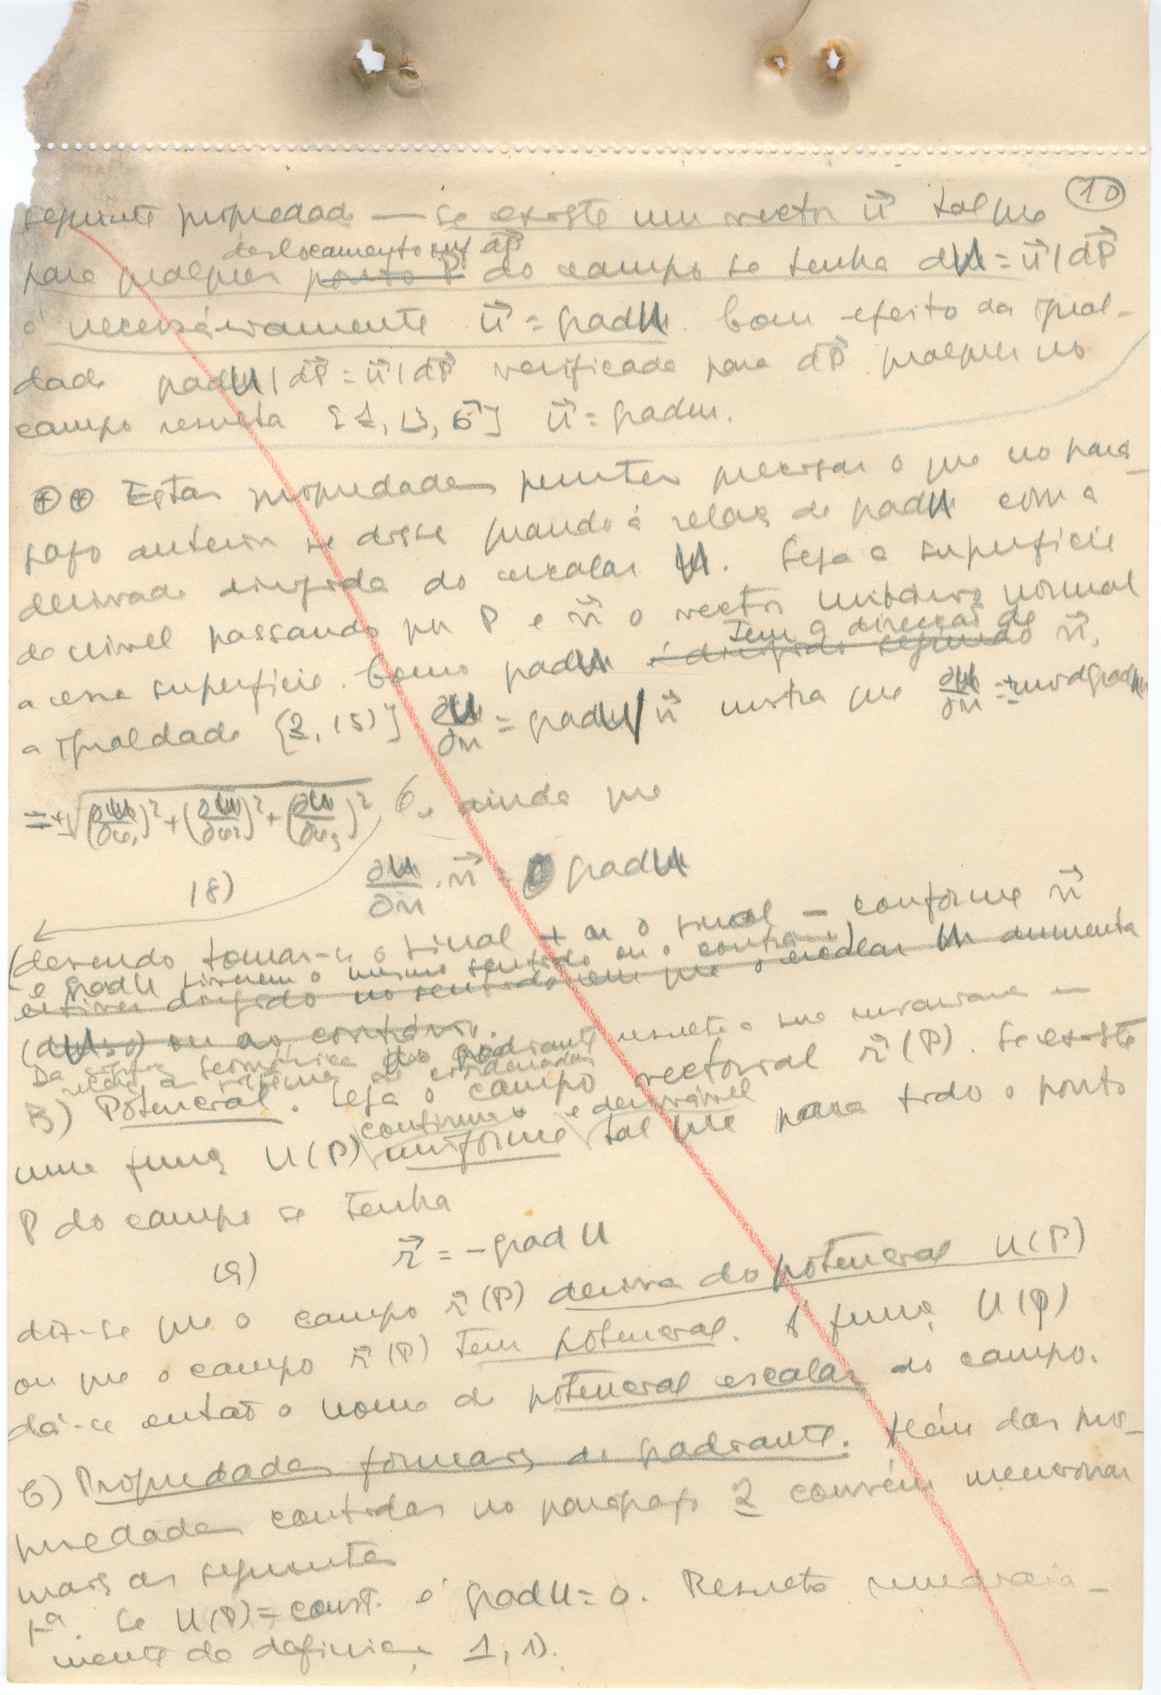 10
seguinte propriedade — se existe um vector u⃗ tal que
deslocamento dP⃗
para qualquer ponto P do campo se tenha dU = u⃗ | dP⃗
é necessáriamente u⃗ = grad U. Com efeito da igual-
dade grad U | dP⃗ = u⃗ | dP⃗ verificada para dP⃗ qualquer no
campo resulta [1, 13, 6] u⃗ = grad u.
⊕⊕ Estas propriedades permitem precisar o que no pará-
grafo anterior se disse quando à relação do grad U com a
derivada dirigida do escalar U. Seja a superfície
de nível passando por P e n⃗ o vector unitário normal
tem a direcção de
a essa superfície. Como grad U é dirigido segundo n⃗,
a igualdade [2, 15)] ∂U/∂n = grad U | n⃗ mostra que ∂U/∂n = ± mod grad U
= ±√((∂U/∂x₁)² + (∂U/∂x₂)² + (∂U/∂x₃)²) E, ainda que
18) ∂U/∂n · n⃗ = grad U
(devendo tomar-se o sinal + ou o sinal − conforme n⃗
e grad U tiverem o mesmo sentido ou o contrário)
estiver dirigido no sentido em que o escalar U aumenta
(dU>0) ou ao contrário.
Da do gradiente resulta a sua invariância em
relação a sistema de coordenadas
B) Potencial. Seja o campo vectorial r⃗(P). Se existe
contínua e derivável
uma função U(P) uniforme tal que para todo o ponto
P do campo se tenha
19) r⃗ = −grad U
diz-se que o campo r⃗(P) deriva do potencial U(P)
ou que o campo r⃗(P) tem potencial. À função U(P)
dá-se então o nome de potencial escalar do campo.
C) Propriedades formais do gradiante. Além das pro-
priedades contidas no parágrafo 2 convém mencionar
mais as seguintes
1ª. Se U(P) = const. é grad U = 0. Resulta imediata-
mente da definição 1, 1).